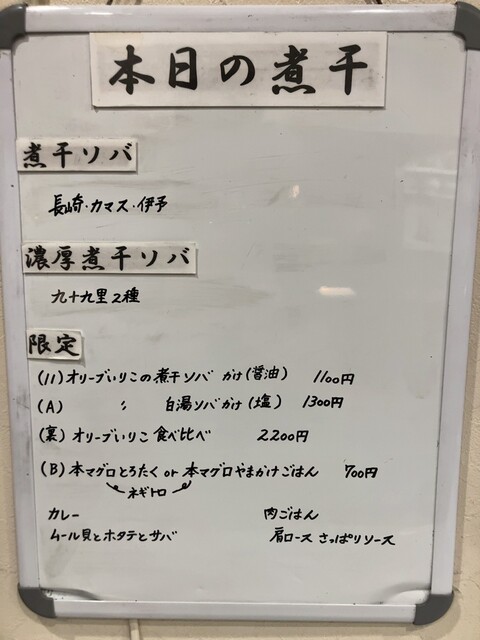 本日の煮干
煮干ソバ
長崎・カマス・伊予
濃厚煮干ソバ
九十九里2種
限定
(11)オリーブいりこの煮干ソバ かけ(醤油) 1100円
(A) 〃 白湯ソバかけ(塩) 1300円
(裏)オリーブいりこ食べ比べ 2200円
(B)本マグロとろたく or 本マグロやまかけごはん 700円
ネギトロ
カレー 肉ごはん
ムール貝とホタテとサバ 肩ロース さっぱりソース